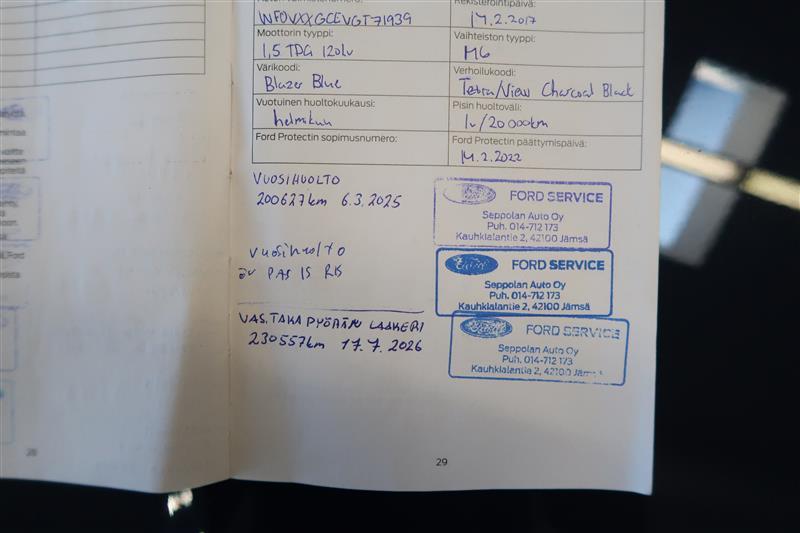 Rekisteröintipäivä:
WF0VXXGCEVGT71939
14.2.2017
Moottorin tyyppi:
Vaihteiston tyyppi:
1,5 TDCi 120hv
M6
Värikoodi:
Verhoilukoodi:
Blazer Blue
Tetra/View Charcoal Black
Vuotuinen huoltokuukausi:
Pisin huoltoväli:
helmikuu
1v/20 000km
Ford Protectin sopimusnumero:
Ford Protectin päättymispäivä:
14.2.2022
VUOSIHUOLTO
200627km 6.3.2025
FORD SERVICE
Seppolan Auto Oy
Puh. 014-712 173
Kauhkialantie 2, 42100 Jämsä
Vuosihuolto
Ford
FORD SERVICE
Seppolan Auto Oy
Puh. 014-712 173
Kauhkialantie 2, 42100 Jämsä
VAS. TAKAPYÖRÄN LAAKERI
230557km 17.7.2026
FORD SERVICE
Seppolan Auto Oy
Puh. 014-712 173
Kauhkialantie 2, 42100 Jämsä
28
29